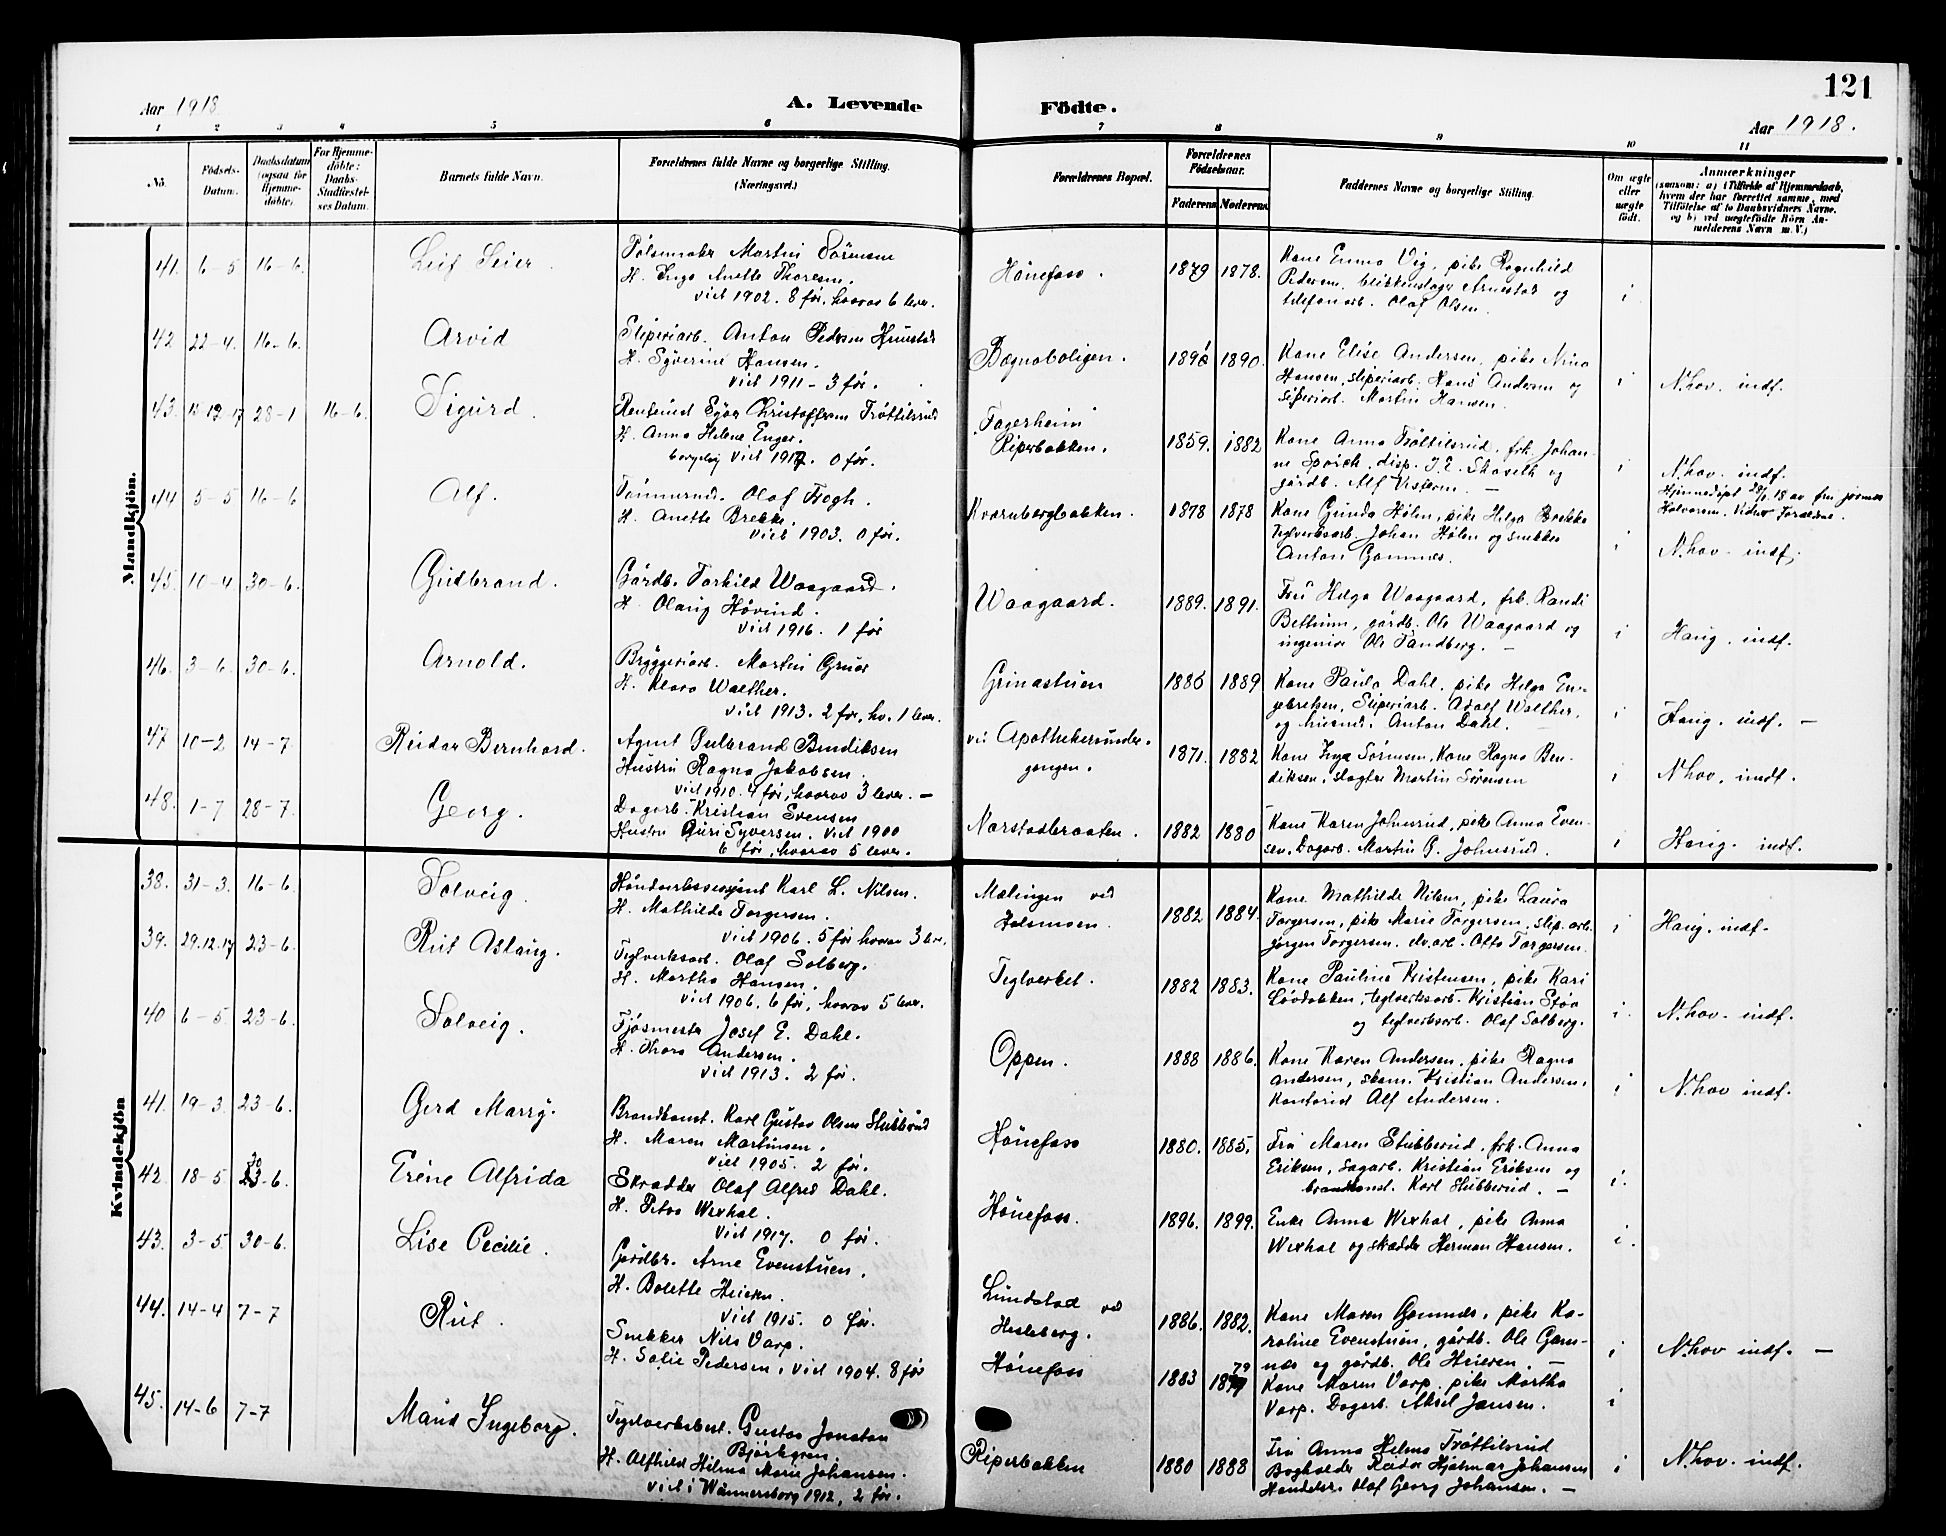 121
Aar 1918
A. Levende
Födte.
Aar 1918.
1 2 3 4 5 6 7 8 9 10 11
No.
Födsels-
Datum.
Daabsdatum
(ogsaa for
Hjemme-
döbte).
For Hjemme-
döbte:
Daabs-
Stadfæstel-
ses Datum.
Barnets fulde Navn.
Forældrenes fulde Navne og borgerlige Stilling.
(Næringsvei.)
Forældrenes Bopæl.
Forældrenes
Födselsaar.
Faderens
Moderens
Faddernes Navne og borgerlige Stilling.
Om ægte
eller
uægte
födt.
Anmærkninger
(saasom: a) i Tilfælde af Hjemmedaab,
hvem der har forrettet samme, med
Tilföielse af to Daabsvidners Navne,
og b) ved uægtefödte Börn An-
melderens Navn m. V.)
Mandkjön.
41. 6-5 16-6. Leif Seier.
Pølsemaker Martin Sörensen
H. Inga Anette Thoresen.
viet 1902. 8 før, hvorav 6 lever.
Hönefoss. 1879 1878.
Kone Emma Vig, pike Ragnhild
Pedersen, blikkenslager Arnestad og
telefonarb. Olaf Olsen.
i
42. 22-4. 16-6. Arvid
Sliperiarb. Anton Pedersen
H. Syverine Hansen.
viet 1911 - 3 før.
Bægnaboligen. 1890.
Kone Elise Andersen, pike Nina
Hansen, sliperiarb. Hans Andersen og
sliperiarb. Martin Hansen.
i N.hov. indf.
43. 15-12-17 28-1 16-6. Sigurd.
Rentenist Egar Christoffersen Trøttilsrud
H. Anna Helene Enger.
borgerlig viet 1917. 0 før.
Fagerheim
Riperbakken. 1859. 1882
Kone Anna Trøttilsrud, frk. Johan-
ne, disp. J. E. og
gårdb. Alf Vesteren. -
i N.hov. indf.
Hjemmedøpt av fru jormor
Halvorsen. Vidner Forældrene.
44. 5-5 16-6 Alf.
Olaf Fogh.
H. Anette Brekke.
viet 1903. 0 før.
Kvernbergbakken. 1878 1878
Kone Gunda Hølen, pike Helga Brekke
Teglverksarb. Johan Hølen og snekker
Anton Gommes.
i N.hov. indf.
45. 10-4 30-6. Gudbrand.
Gårdb. Torkild Waagaard.
H. Olaug Hövind.
viet 1916. 1 før
Waagaard. 1889. 1891.
Fru Helga Waagaard, frk. Randi
Bettum, gårdb. Ole Waagaard og
ingeniör Ole Tandberg. -
i Haug. indf.
46. 3-6. 30-6. Arnold.
Bryggeriarb. Martin Gruer
H. Klara Walther.
viet 1913. 2 før, hv. 1 lever.
Grinastuen 1886 1889
Kone Paula Dahl, pike Helga En-
gebretsen, Sliperiarb. Adolf Walther,
og husmd. Anton Dahl.
i Haug. indf. -
47 10-2 14-7. Reidar Bernhard.
Agent Gulbrand Bendiksen
Hustru Ragna Jakobsen
viet 1910. 4 før, hvorav 3 lever. -
vei Apothekerunder-
gangen. 1871. 1882
Kone Inga Sørensen, Kone Ragna Ben-
diksen, slagter Martin Sørensen
i N.hov. indf.
48. 1-7 28-7. Georg.
Dagarb. Kristian Evensen
Hustru Guri Syversen. viet 1900
6 før, hvorav 5 lever.
Narstadbraaten. 1882 1880
Kone Karen Johnsrud, pike Anna Even-
sen, Dagarb. Martin G. Johnsrud.
i Haug. indf.
Kvindekjön
38. 31-3. 16-6. Solveig.
Karl L. Nilsen.
H. Mathilde Torgersen.
viet 1906. 5 før hvorav 3 lev.
Mælingen ved
Halsmoen. 1882 1884.
Kone Mathilde Nilsen, pike Laura
Torgersen, pike Marie Torgersen, slip.arb.
Jörgen Torgersen, elv.arb. Otto Torgersen.
i Haug. indf.
39. 29.12.17 23-6. Rut Aslaug.
Teglverksarb. Olaf Solberg.
H. Martha Hansen.
viet 1906. 6 før, hvorav 5 lever.
Teglverket. 1882 1883.
Kone Pauline Kristensen, pike Kari
Løvdokken, teglverksarb. Kristian Støa
og teglverksarb. Olaf Solberg.
i. N.hov. indf.
40 6-5 23-6. Solveig.
Fjøsmester Josef E. Dahl.
H. Thora Andersen.
viet 1913. 2 før.
Oppen. 1888 1886.
Kone Karen Andersen, pike Ragna
Andersen, skom. Kristian Andersen,
Kontorist Alf Andersen.
i N.hov indf.
41. 19-3. 23-6. Gerd Marry.
Brandkonst. Karl Gustav Olsen Stubberud
H. Maren Martinsen.
viet 1905. 2 før.
Hönefoss 1880. 1885.
Fru Maren Stubberud, frk. Anna
Eriksen, sagarb. Kristian Eriksen og
brandkonst. Karl Stubberud. -
i.
42. 18-5 30-6. Eréne Alfrida
Skrædder Olaf Alfred Dahl.
H. Petra Wexhal.
viet 1917. 0 før.
Hönefoss. 1896. 1899.
Enke Anna Wexhal, pike Anna
Wexhal og skrædder Herman Hansen.
i.
43. 3-5 30-6. Lise Cecilie.
Gårdbr. Arne Evenstuen.
H. Bolette Heieren.
viet 1915. 0 før.
Lundstad ved
Hesleberg. 1886. 1882.
Kone Maren Gamnes, pike Ka-
roline Evenstuen, gårdb. Ole Gam-
næs og gårdb. Ole Heieren. -
i N.hov indf. -
44. 14-4 7-7 Rut.
Snekker Nils Varp.
H. Solie Pedersen. viet 1904. 8 før
Hönefoss 1883 1879
Kone Maren Varp, pike Martha
Varp. Dagarb. Aksel Jansen.
i
45. 14-6 7-7 Maud Ingeborg.
Teglverksbest. Gustav Jonatan
Björkgren
H. Alfhild Hilma Marie Johansen.
viet i Wännersborg 1912, 2 før.
Riperbakken 1880 1888
Fru Anna Helene Trøttilsrud
Bogholder Reidar Hjalmar Johansen
Handelsr. Olaf Georg Johansen. -
i N.hov. indf.